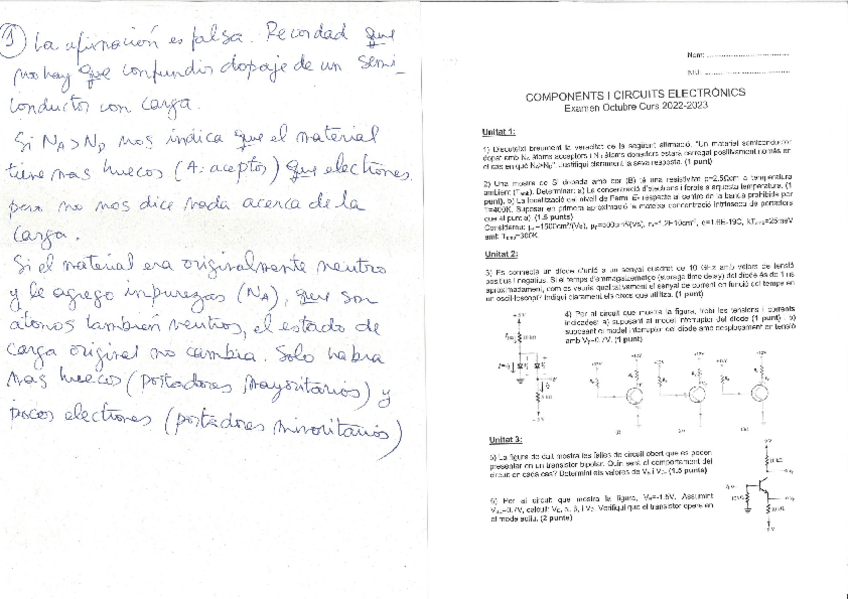 1) La afirmación es falsa. Recordad que
no hay que confundir dopaje de un semi-
conductor con carga.
Si NA > ND nos indica que el material
tiene mas huecos (A: aceptor) que electrones
pero no nos dice nada acerca de la
carga.
Si el material era originalmente neutro
y le agrego impurezas (NA), que son
átomos también neutros, el estado de
carga original no cambia. Solo habra
mas huecos (portadores mayoritarios) y
pocos electrones (portadores minoritarios)
Nom:
NIU:
COMPONENTS I CIRCUITS ELECTRÒNICS
Examen Octubre Curs 2022-2023
Unitat 1:
1) Discuteixi breument la veracitat de la següent afirmació. "Un material semiconductor
dopat amb NA àtoms acceptors i ND àtoms donadors estarà carregat positivament només en
el cas en què NA>ND". Justifiqui clarament la seva resposta. (1 punt)
2) Una mostra de Si dopada amb bor (B) té una resistivitat ρ=2.5Ωcm a temperatura
ambient Determinar: a) La concentració d'electrons i forats a aquesta temperatura. (1
punt). b) La localització del nivell de Fermi EF respecte al centre de la banda prohibida per
T=400K. Suposar en primera aproximació la mateixa concentració intrínseca de portadors
que al punt a). (1.5 punts)
Unitat 2:
3) Es connecta un díode d'unió a un senyal quadrat de 10 GHz amb valors de tensió
positius i negatius. Si el temps d'emmagatzematge (storage time delay) del díode és de 1 ns
aproximadament, com es veuria qualitativament el senyal de corrent en funció del temps en
un oscil·loscopi? Indiqui clarament els eixos que utilitza. (1 punt)
4) Per al circuit que mostra la figura, trobi les tensions i corrents
indicades: a) suposant al model interruptor del díode (1 punt) b)
suposant el model interruptor del díode amb desplaçament en tensió
amb V =0.7V. (1 punt)
Unitat 3:
5) La figura de dalt mostra les falles de circuit obert que es poden
presentar en un transistor bipolar. Quin serà el comportament del
circuit en cada cas? Determini els valores de (1.5 punts)
6) Per al circuit que mostra la figura, =-1.5V. Assumint
=0.7V, calculi: Verifiqui que el transistor opera en
el mode actiu. (2 punts)